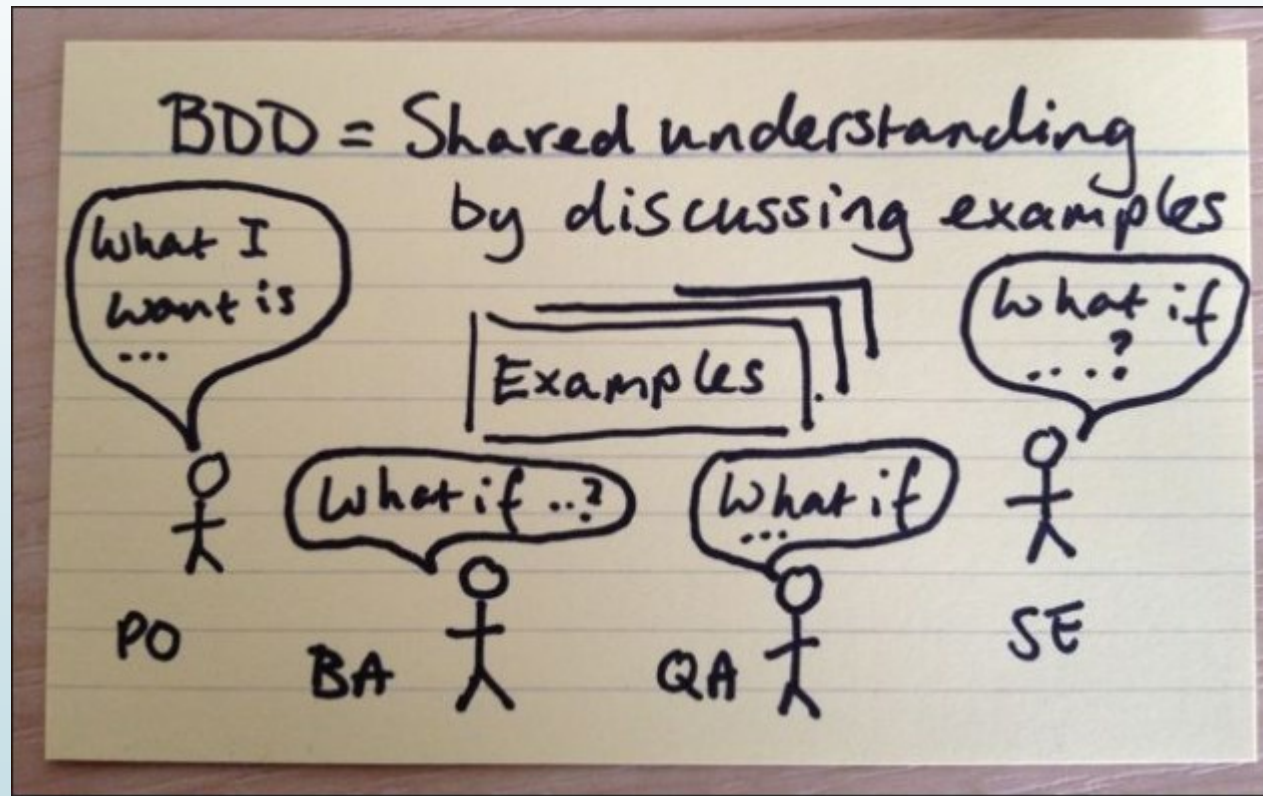 BDD = Shared understanding
by discussing examples
What I
want is
...
Examples
What if
....?
What if ..?
What if
...
PO
BA
QA
SE